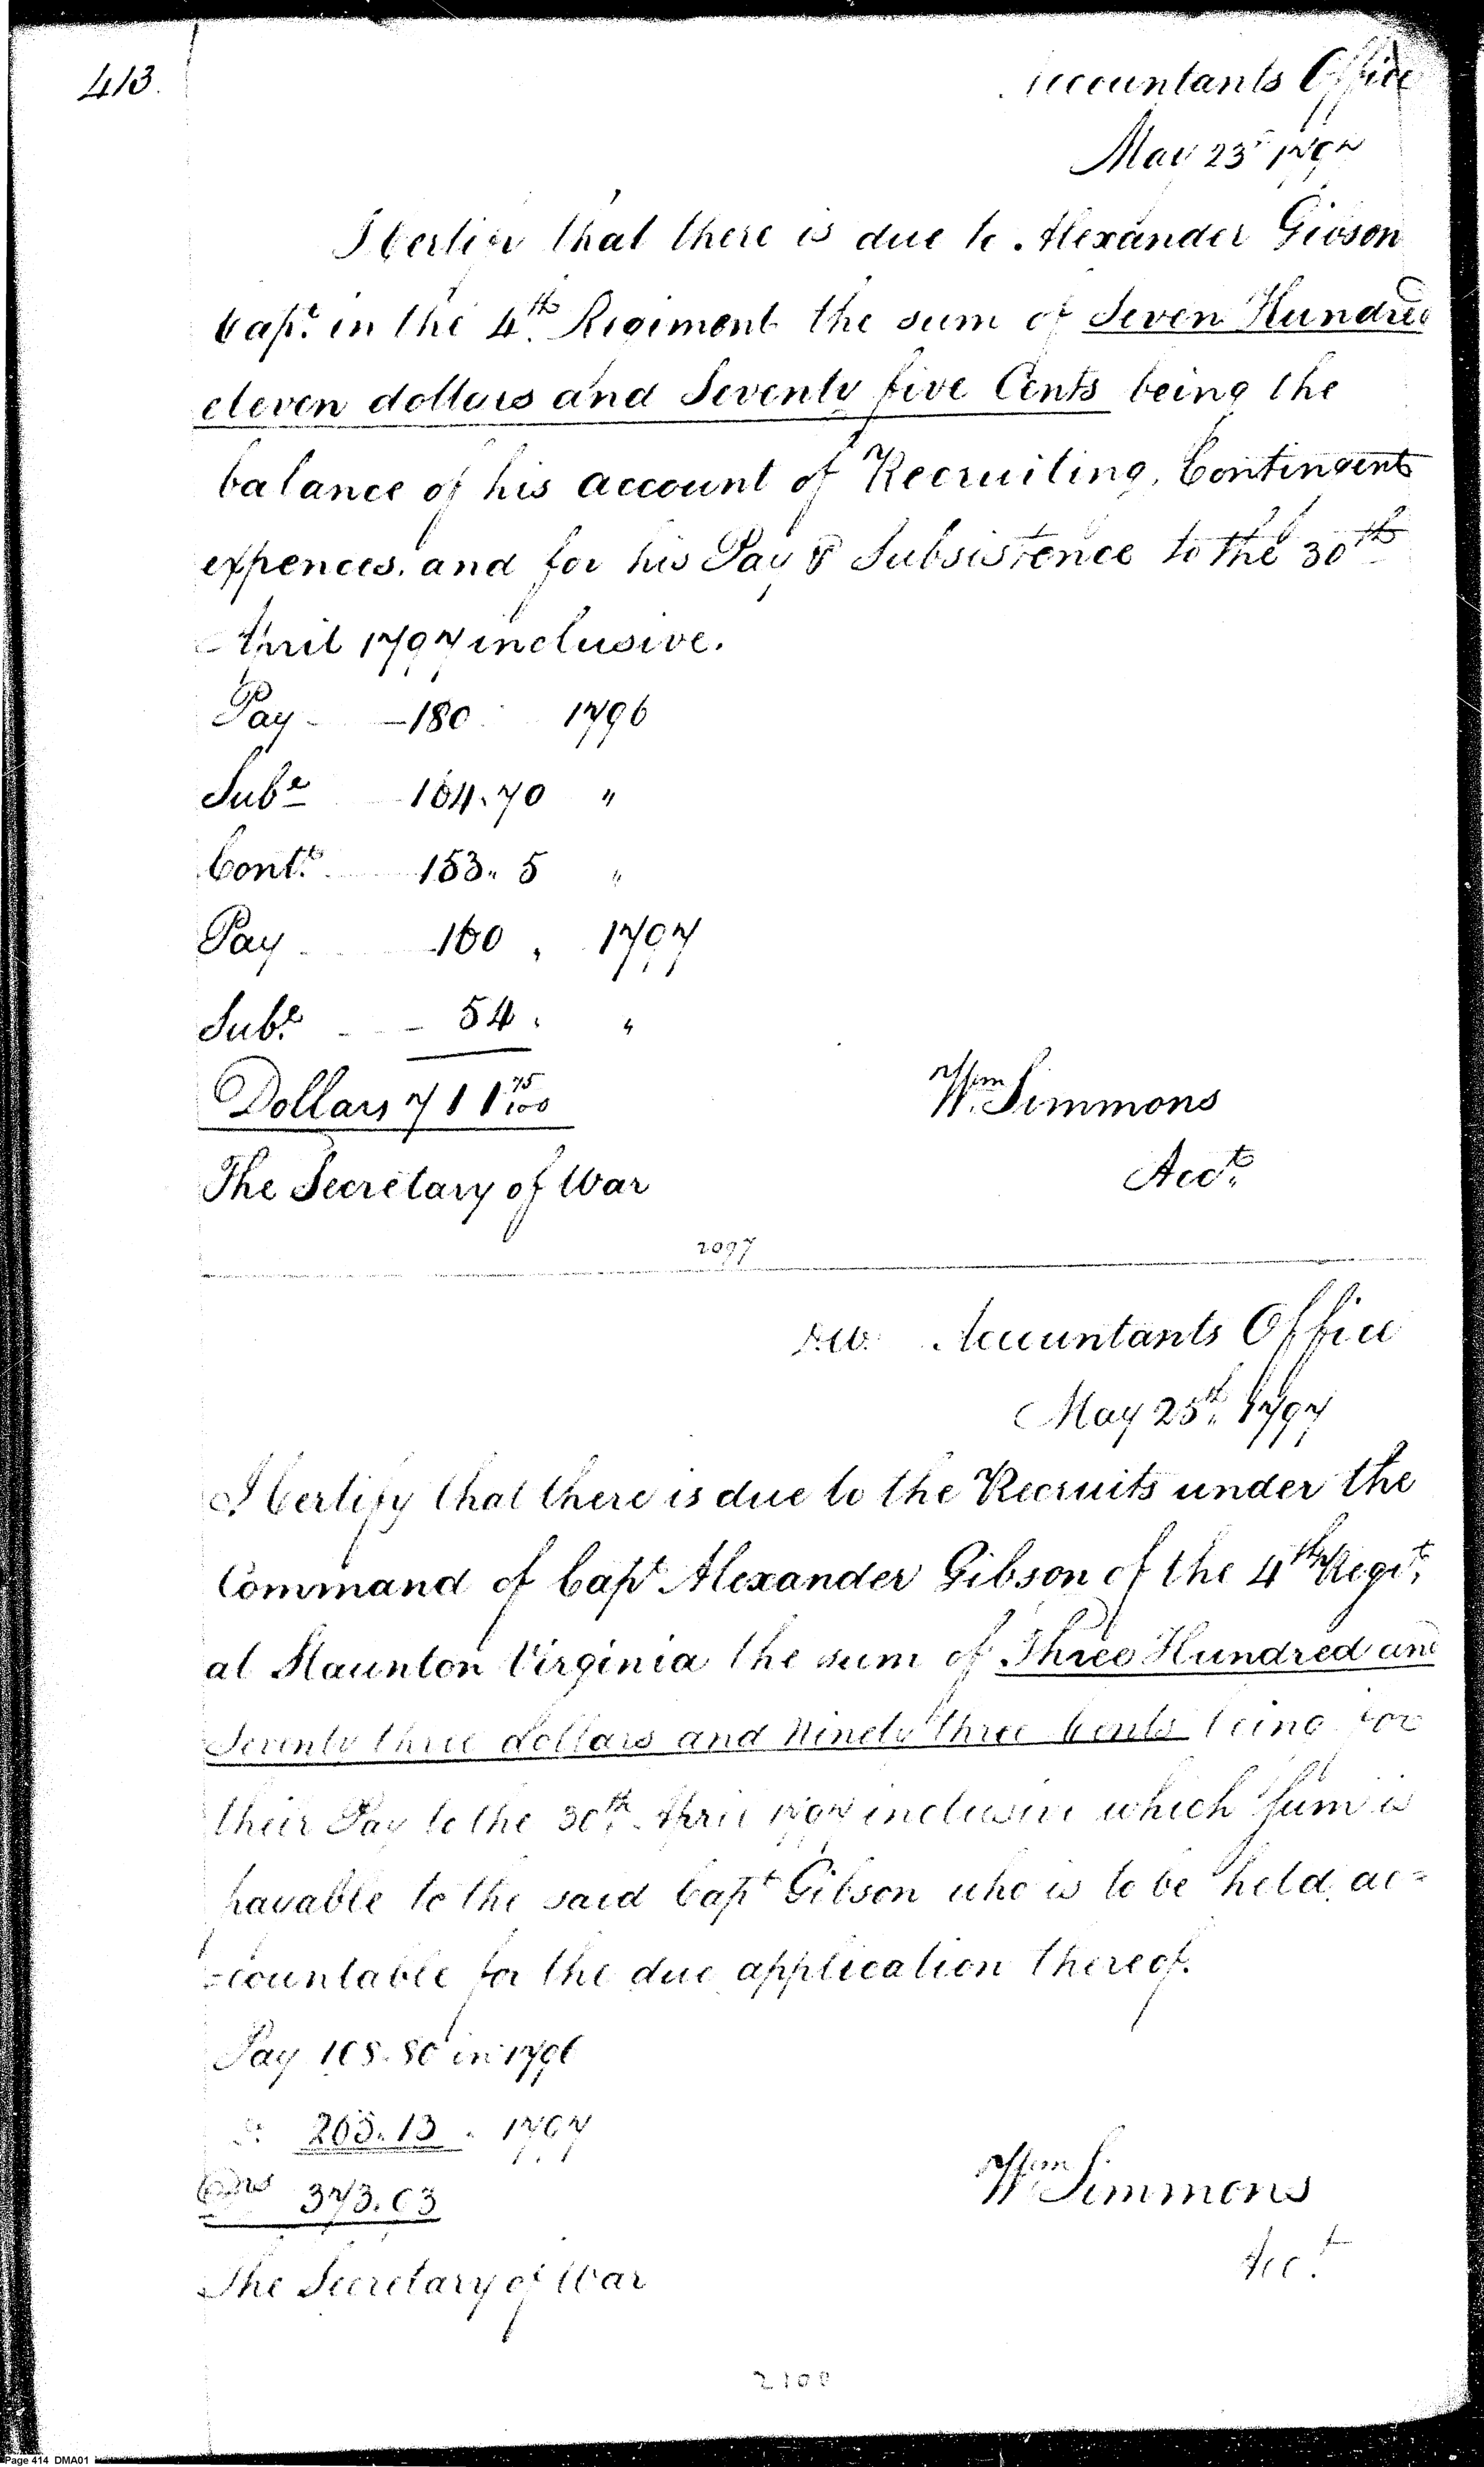 413.
Accountants Office
May 23d 1797
I Certify that there is due to Alexander Gibson
Capt. in the 4th. Regiment the sum of Seven Hundred
eleven dollars and Seventy five Cents being the
balance of his account of Recruiting, Contingent
expences, and for his Pay & Subsistence to the 30th
April 1797 inclusive.
Pay - 180 1796
Sube 164.70 "
Contt. 153. 5 "
Pay 160 . 1797
Sube. - 54. "
Dollars 711 75/100
Wm Simmons
The Secretary of War
Acct.
2097
D.W. Accountants Office
May 25th. 1797
I Certify that there is due to the Recruits under the
Command of Capt Alexander Gibson of the 4th Regit.
at Staunton Virginia the sum of Three Hundred and
Seventy three dollars and Ninety three Cents being for
their Pay to the 30th. April 1797 inclusive which sum is
payable to the said Capt Gibson who is to be held ac=
=countable for the due application thereof.
Pay 108.80 in 1796
265.13 . 1797
373.93
Wm Simmons
Acct.
The Secretary of War
2100
Page 414 DMA01